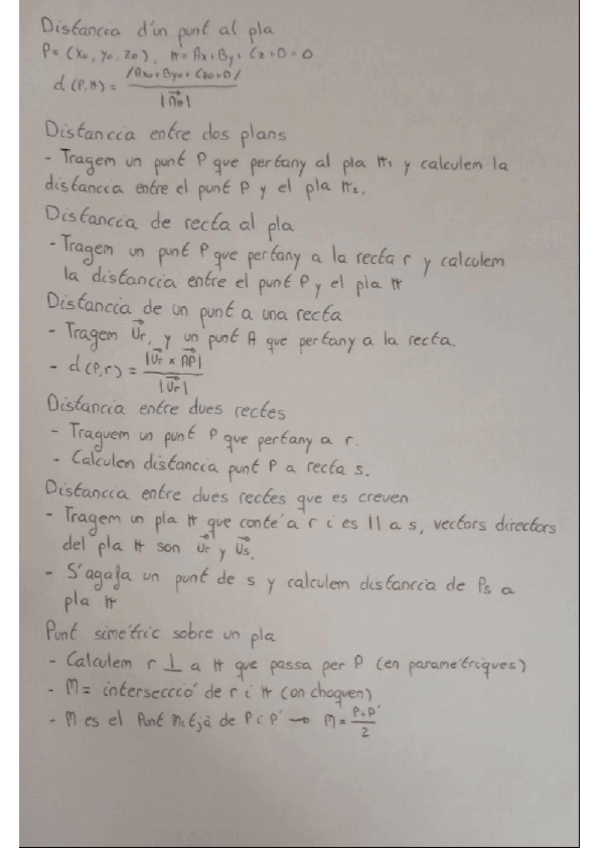 Distancia d'un punt al pla
P= (x₀, y₀, z₀), π= Ax+By+Cz+D=0
d(P,π)= /Ax₀+By₀+Cz₀+D/ / |n⃗π|
Distanccia entre dos plans
- Tragem un punt P que pertany al pla π₁ y calculem la
distanccia entre el punt P y el pla π₂.
Distancia de recta al pla
- Tragem un punt P que pertany a la recta r y calculem
la distancia entre el punt P y el pla π
Distancia de un punt a una recta
- Tragem U⃗r, y un punt A que pertany a la recta.
- d(P,r)= |U⃗r x AP⃗| / |U⃗r|
Distancia entre dues rectes
- Traguem un punt P que pertany a r.
- Calculem distancia punt P a recta s.
Distancia entre dues rectes que es creven
- Tragem un pla π que conté a r i es || a s, vectors directors
del pla π son U⃗r y U⃗s.
- S'agafa un punt de s y calculem distancia de Ps a
pla π
Punt simétric sobre un pla
- Calculem r ⊥ a π que passa per P (en paramétriques)
- M= intersecció de r i π (on choquen)
- M es el Punt Mitjà de P i P' → M= P+P' / 2